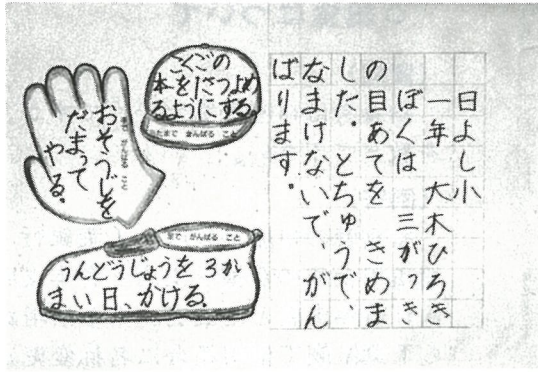 日よし小
一年　大木ひろき
ぼくは　三がっき
の目あてを　きめま
した。とちゅうで、
なまけないで、がん
ばります。
こくごの
本を1さつよめ
るようにする。
がんばる　こと
おそうじを
だまって
やる。
がんばる　こと
うんどうじょうを 3か
まい日、かける。